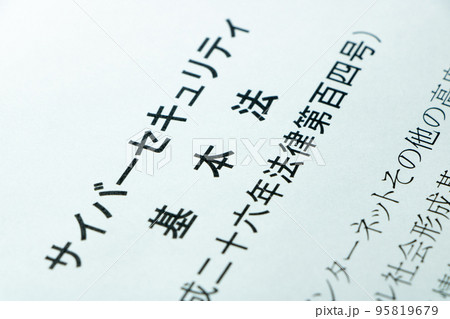 サイバーセキュリティ
基本法
成二十六年法律第百四号)
ンターネットその他の高
ル社会形成基
pixta.jp - 95819679